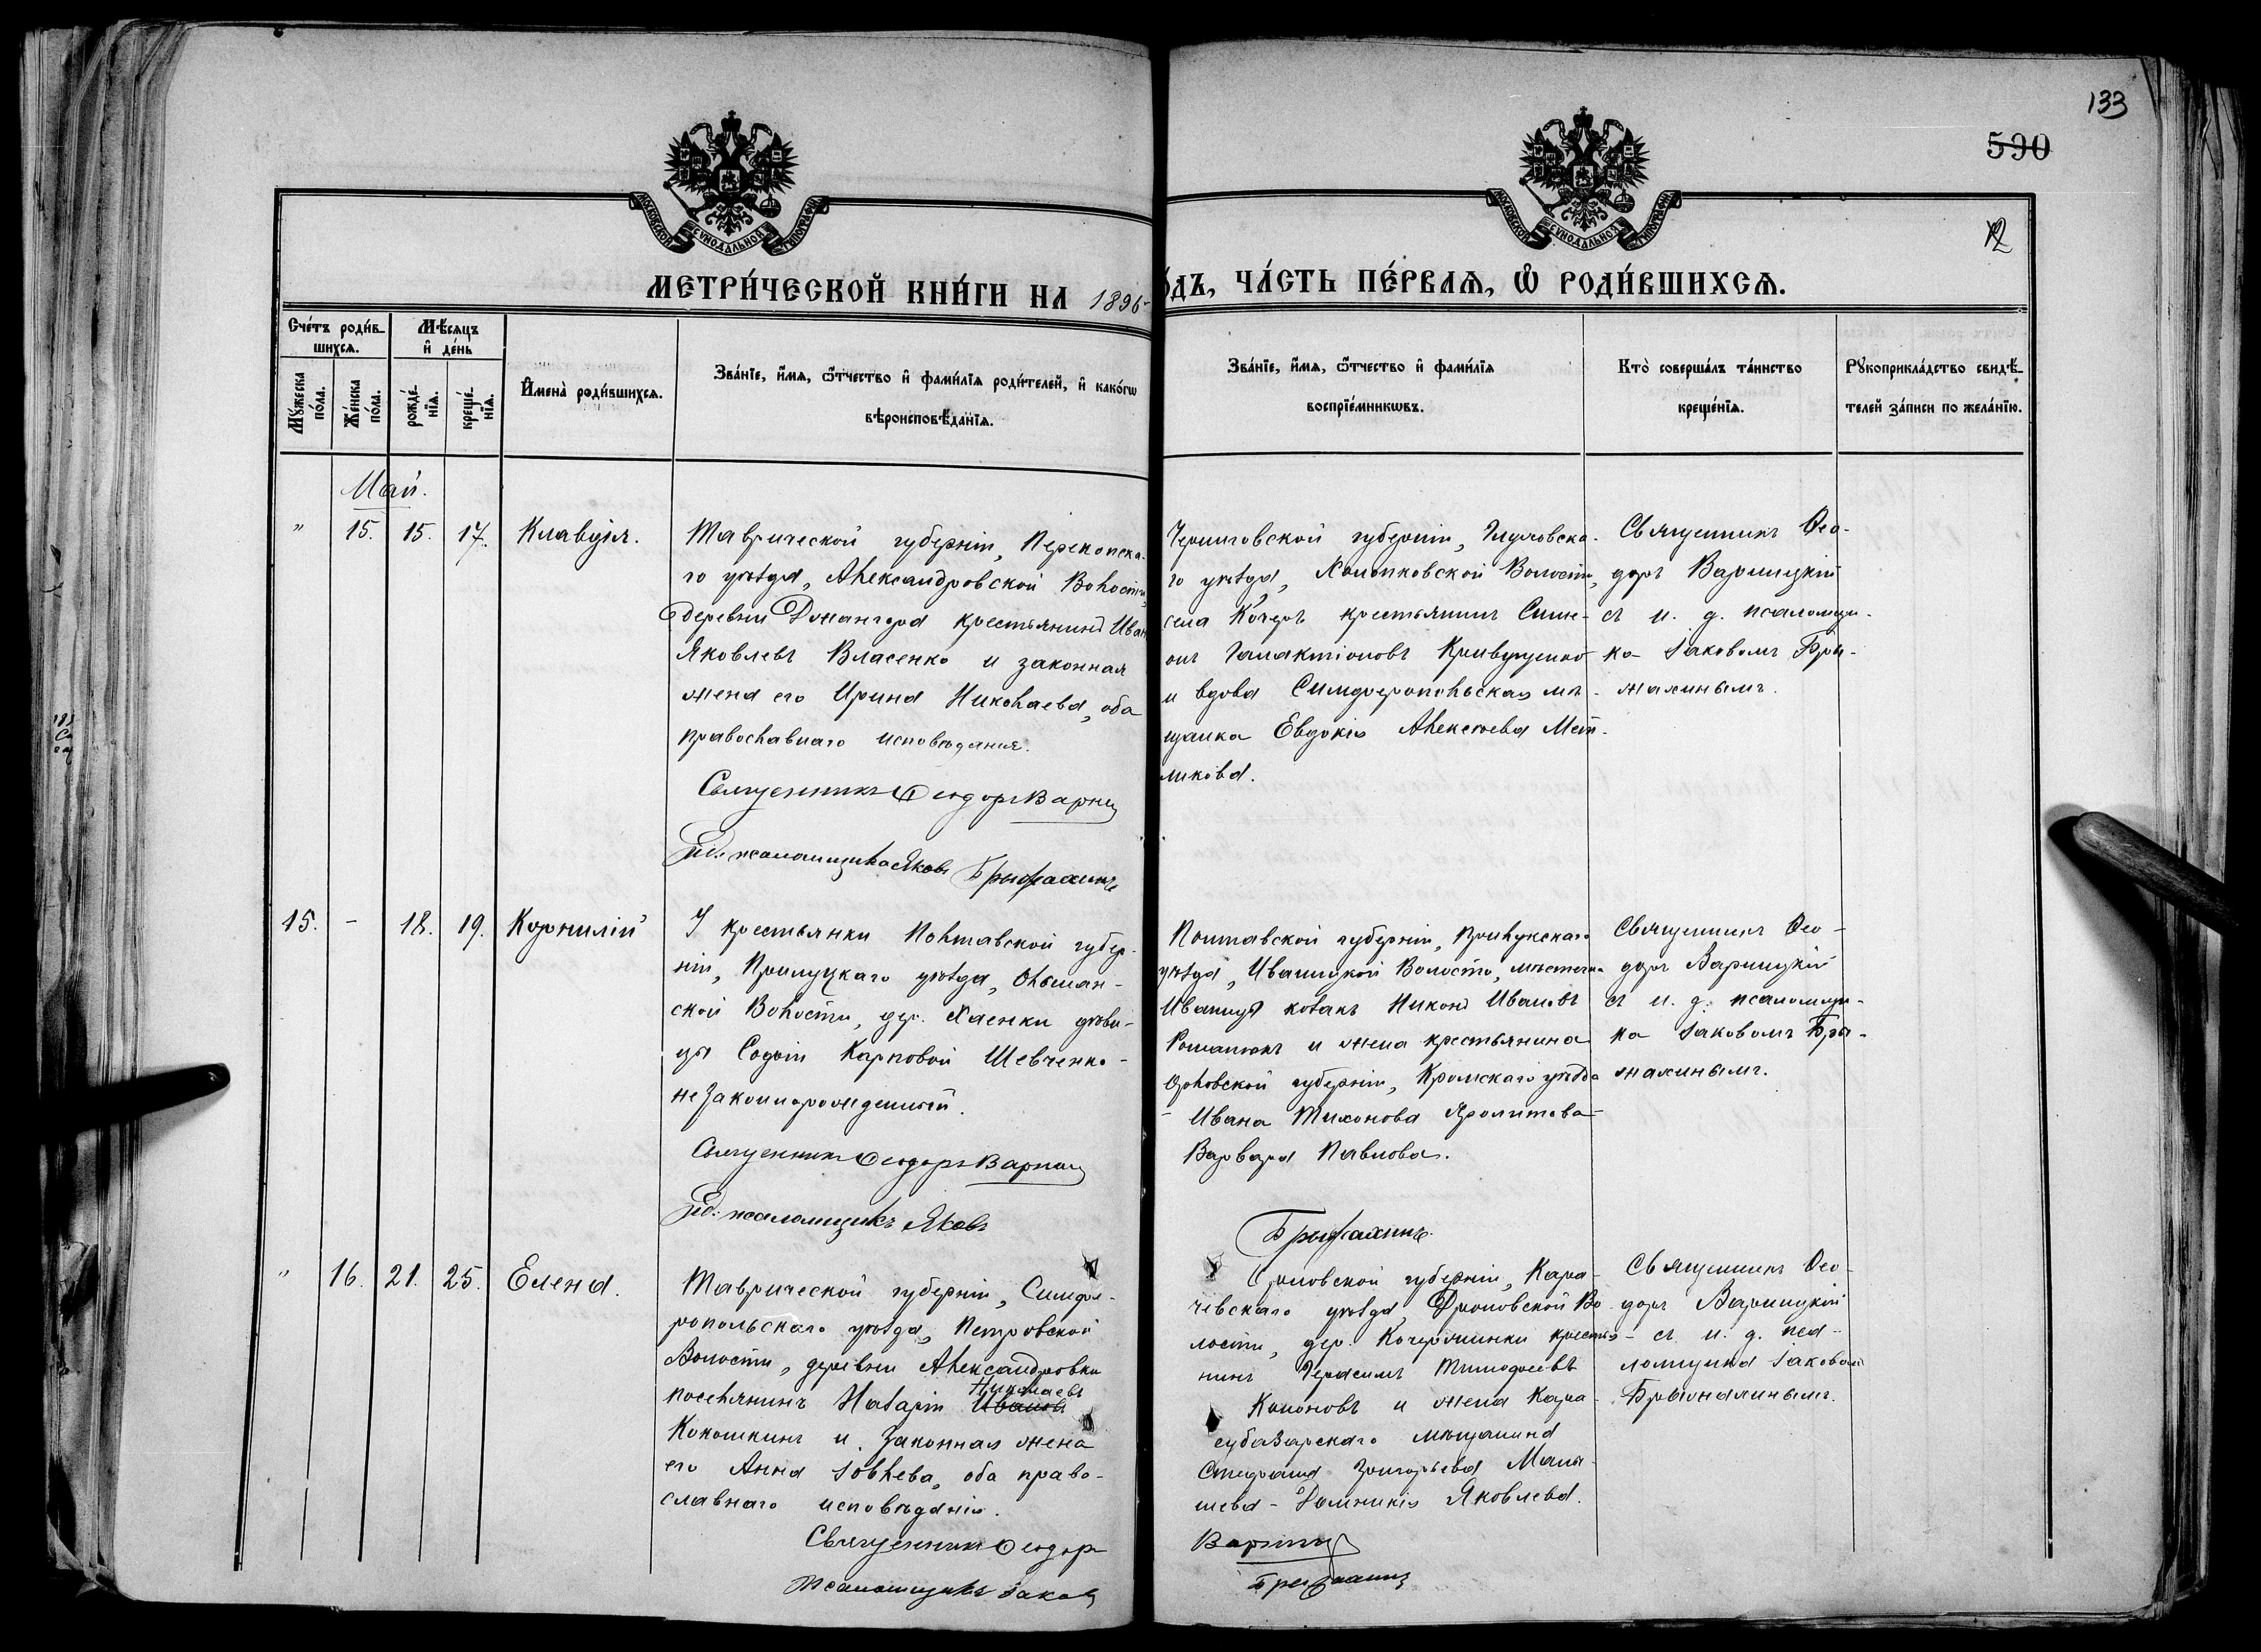 133
590
12
МОСКОВСКОЙ СѴНОДАЛЬНОЙ ТИПОГРАФІИ
МОСКОВСКОЙ СѴНОДАЛЬНОЙ ТИПОГРАФІИ
МЕТРИ́ЧЕСКОЙ КНИ́ГИ НА 1896
О́ДЪ, ЧА́СТЬ ПЕ́РВАѦ, Ѽ РОДИ́ВШИХСѦ.
Сче́тъ роди́в-
шихсѧ.
Мѣ́сѧцъ
и҆ де́нь
Мꙋ́жеска по́ла.
Же́нска по́ла.
рожде́-
нїѧ.
креще́-
нїѧ.
И҆мена̀ роди́вшихсѧ.
Зва́нїе, и҆́мѧ, ѻ҆́тчество и҆ фами́лїѧ роди́телей, и҆ како́гѡ
вѣроисповѣ́данїѧ.
Зва́нїе, и҆́мѧ, ѻ҆́тчество и҆ фами́лїѧ
воспрїе́мникѡвъ.
Кто̀ соверша́лъ та́инство
креще́нїѧ.
Рꙋкоприкла́дство свидѣ́-
телей за́писи по жела́нїю.
Май.
" 15. 15. 17. Клавдія.
Таврической губерніи, Перекопска-
го уѣзда, Александровской Волости,
деревни Джангора крестьянинъ Иван
Яковлевъ Власенко и законная
жена его Ирина Николаева, оба
православнаго исповѣданія.
Священникъ Ѳеодоръ Варниц
И.д. псаломщика Яковъ Брыжахинъ
Черниговской губерніи, Глуховска-
го уѣзда, Холопковской Волости,
села Кочергъ крестьянинъ Симе-
онъ Галактіоновъ
и вдова Симферопольская мѣ-
щанка Евдокія Алексѣева Мет-
ликова.
Священникъ Ѳео-
доръ Варницкій
съ и. д. псаломщи-
ка Іаковомъ Бры-
жахинымъ.
15. - 18. 19. Корнилій
У крестьянки Полтавской губер-
ніи, Прилуцкаго уѣзда, Ольшан-
ской Волости, дер. Хаенки дѣви-
цы Софіи Карповой Шевченко-
незаконнорожденный.
Священникъ Ѳеодоръ Варниц
И.д. псаломщикъ Яковъ
Брыжахинъ.
Полтавской губерніи, Прилукскаго
уѣзда, Иваницкой Волости, мѣстечка
Иваницы козакъ Никонъ Ивановъ
Романюкъ и жена крестьянина
Орловской губерніи, Кромскаго уѣзда
- Ивана Тихонова
Варвара Павлова.
Священникъ Ѳео-
доръ Варницкій
съ и. д. псаломщи-
ка Іаковомъ Бры-
жахинымъ.
" 16. 21. 25. Елена.
Таврической губерніи, Симфе-
ропольскаго уѣзда, Петровской
Волости, деревни Александровки
Николаевъ
поселянинъ Назарій Ивановъ
Кокошкинъ и законная жена
его Анна Іовлева, оба право-
славнаго исповѣданія.
Священникъ Ѳеодоръ
Псаломщикъ Іаковъ
Орловской губерніи, Кара-
чевскаго уѣзда, Дроновской Во-
лости, дер. Кочержинки крестья-
нинъ Герасимъ Тимофеевъ
Кононовъ и жена Кара-
субазарскаго мѣщанина
Стефана Григорьева Малы-
шева - Домникія Яковлева.
Варниц
Брыжахинъ
Священникъ Ѳео-
доръ Варницкій
съ и. д. пса-
ломщика Іаковомъ
Брыжахинымъ.